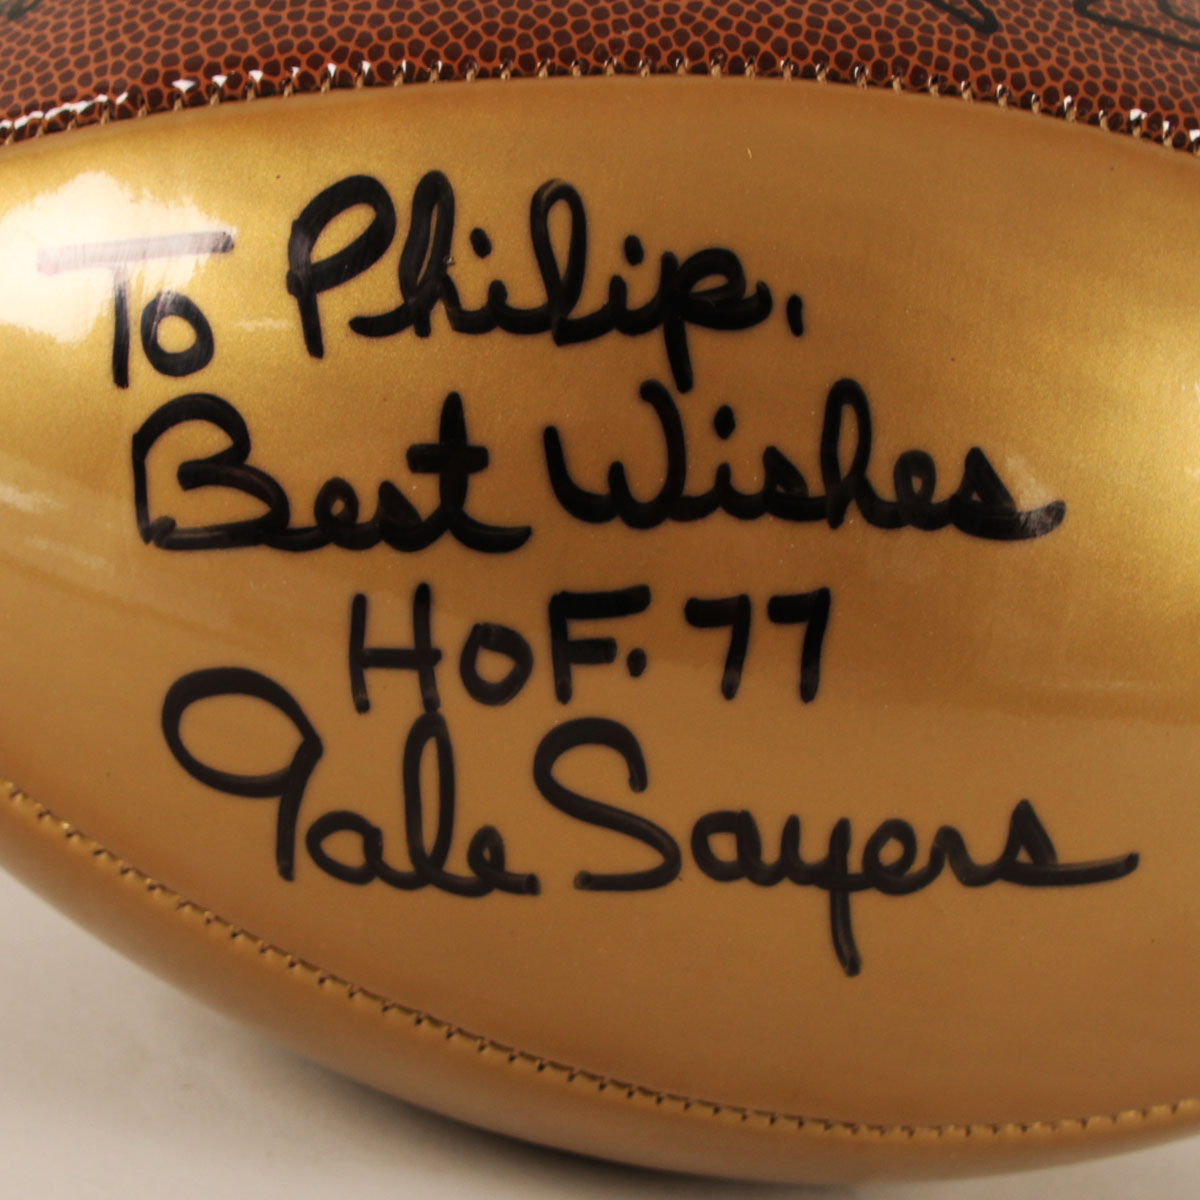 To Philip,
Best Wishes
HOF. 77
Gale Sayers